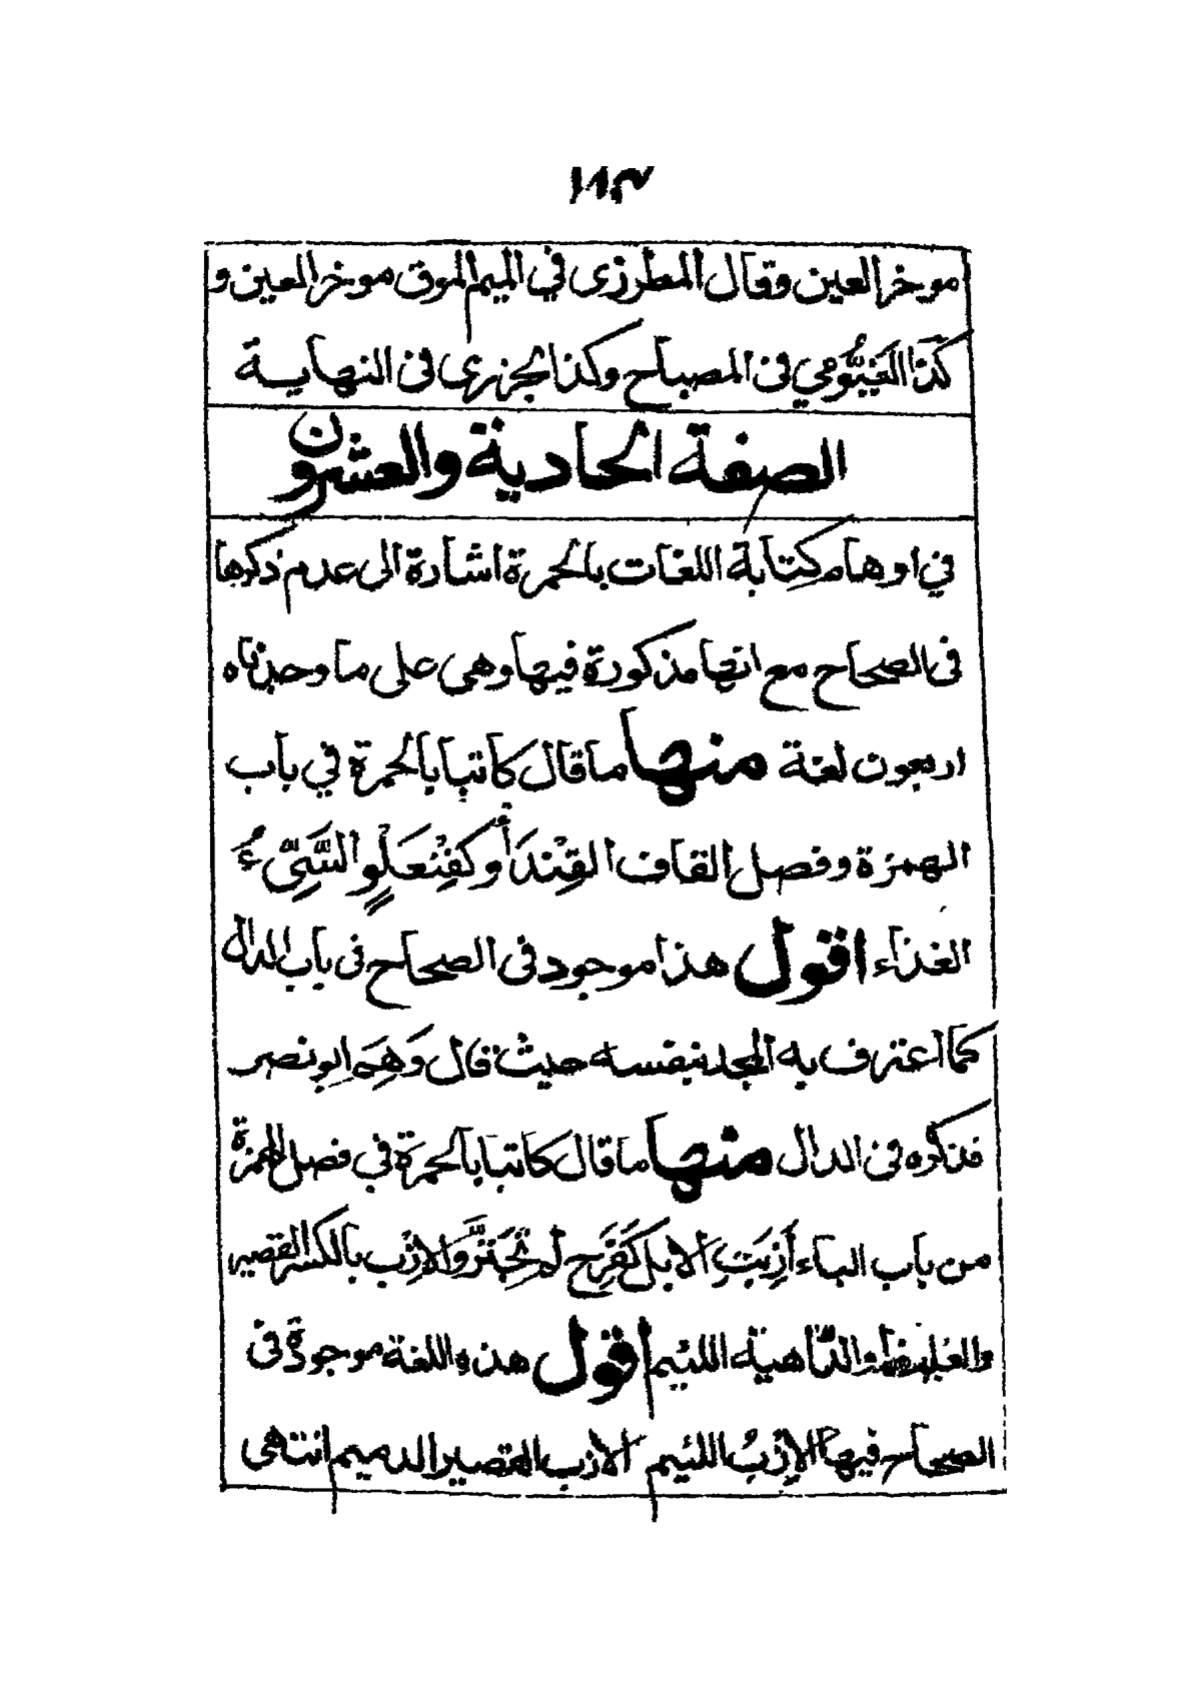 ١٨٣
موخر العين وقال المطرزى في الميم الموق موخر العين و
كذا الفَيُّومي فى المصباح وكذا الجزرى فى النهاية
الصفة الحادية والعشرون
في اوهام كِتابة اللغات بالحمرة اشارة الى عدم ذكرها
فى الصحاح مع انها مذكورة فيها وهى على ما وجدناه
اربعون لغة منها ما قال كاتبا بالحمرة في باب
الهمزة وفصل القاف القِنْدَأْو كفِنْعَلْوٍ السَّيِّئُ
الغذاء اقول هذا موجود فى الصحاح فى باب الدال
كما اعترف به المجد بنفسه حيث قال وَهِمَ ابو نصر
فذكره فى الدال منها ما قال كاتبا بالحمرة في فصل الهمزة
من باب الباء أَزِبَتِ الابل كَفَرِحَ لم تَجْتَرَّ والازْب بالكسر القصير
والغليظ والدَّاهية اللئيم اقول هذه اللغة موجودة فى
الصحاح فيها الاِزْبُ اللئيم الازب القصير الدميم انتهى